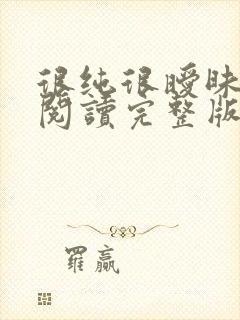 很纯很曖昧
閱讀完整版
羅贏